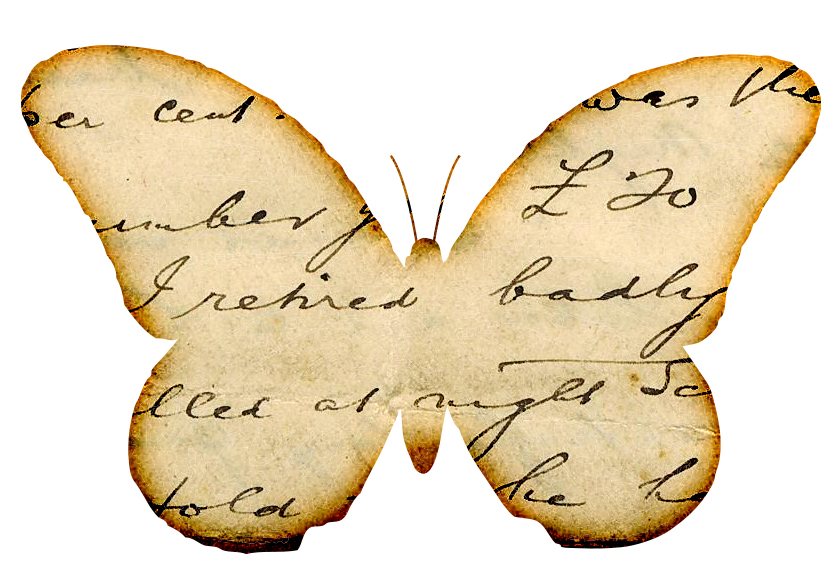 per cent. was the
umber £ 20
I retired badly
lled at night Sc
told he ha